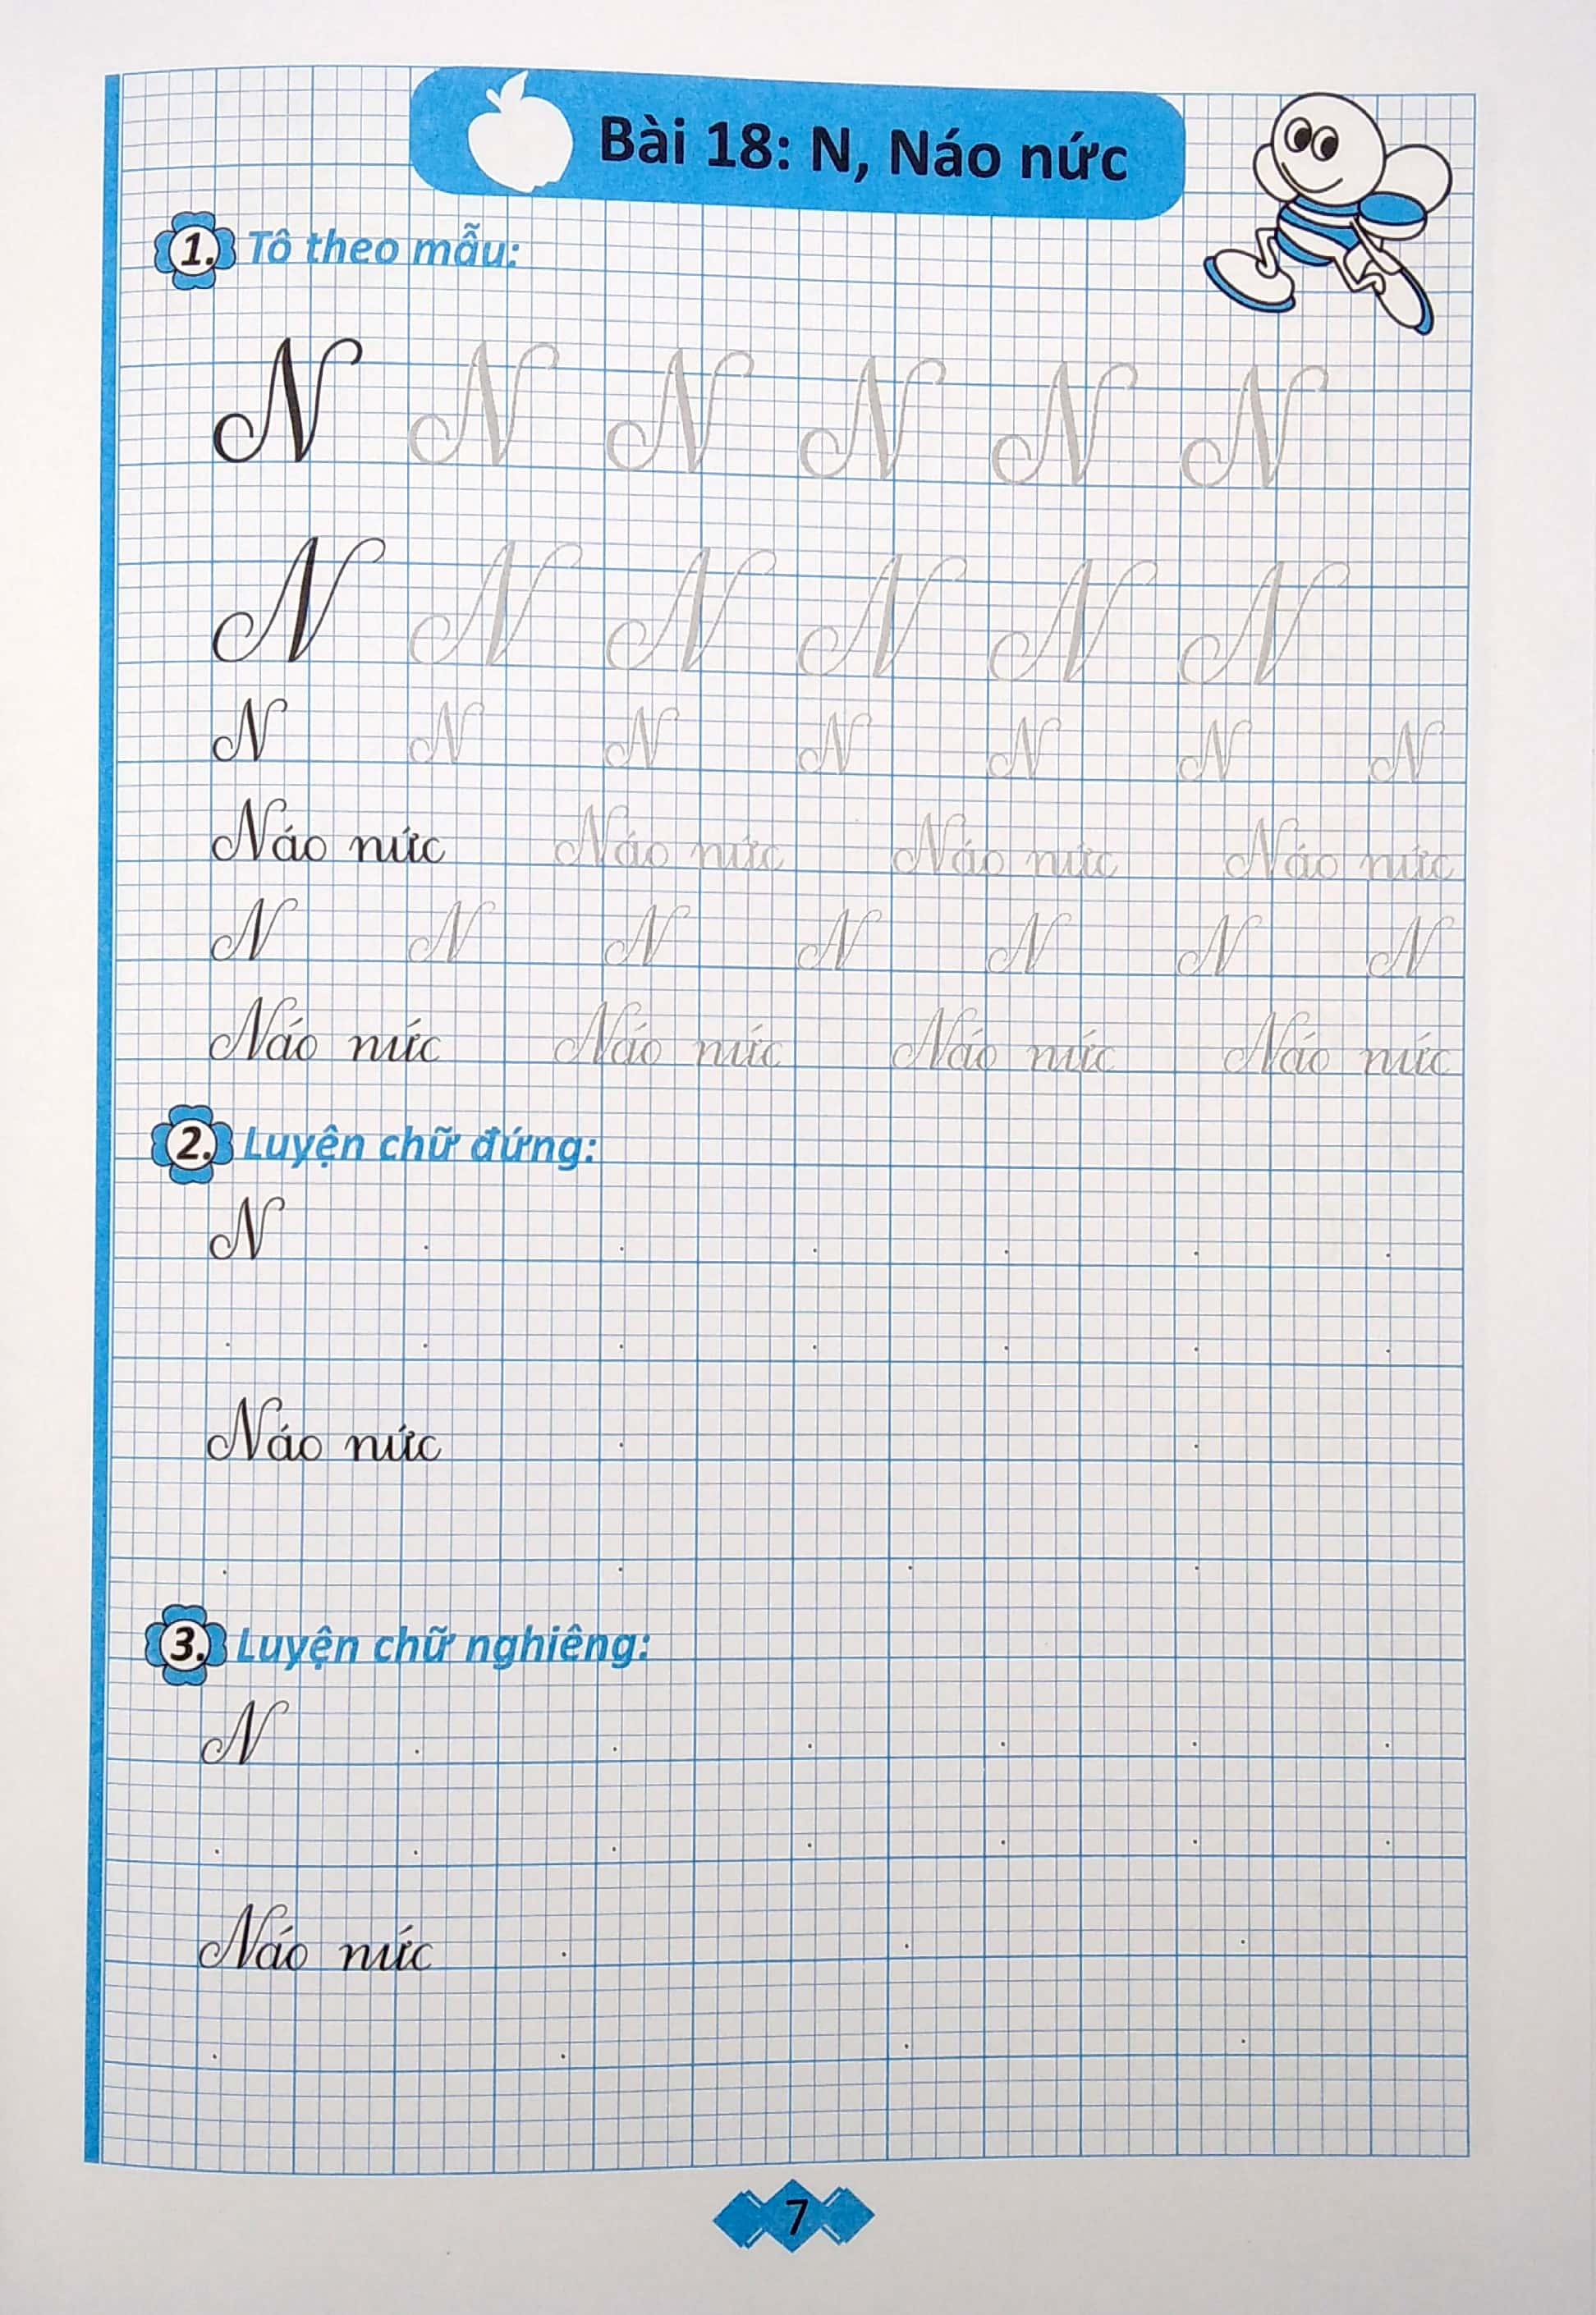 Bài 18: N, Náo nức
1. Tô theo mẫu:
N N N N N N
N N N N N N
N N N N N N N
Náo nức Náo nức Náo nức Náo nức
N N N N N N N
Náo nức Náo nức Náo nức Náo nức
2. Luyện chữ đứng:
N
Náo nức
3. Luyện chữ nghiêng:
N
Náo nức
7